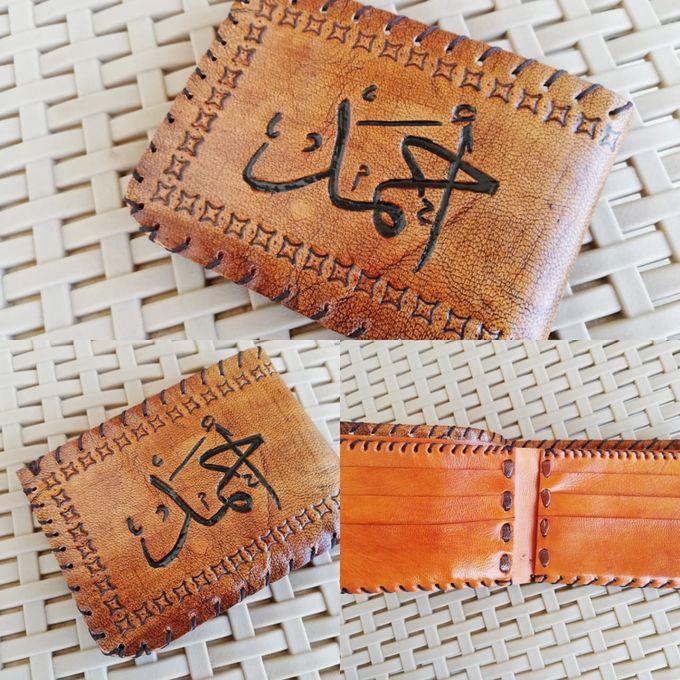 أحمد
أحمد